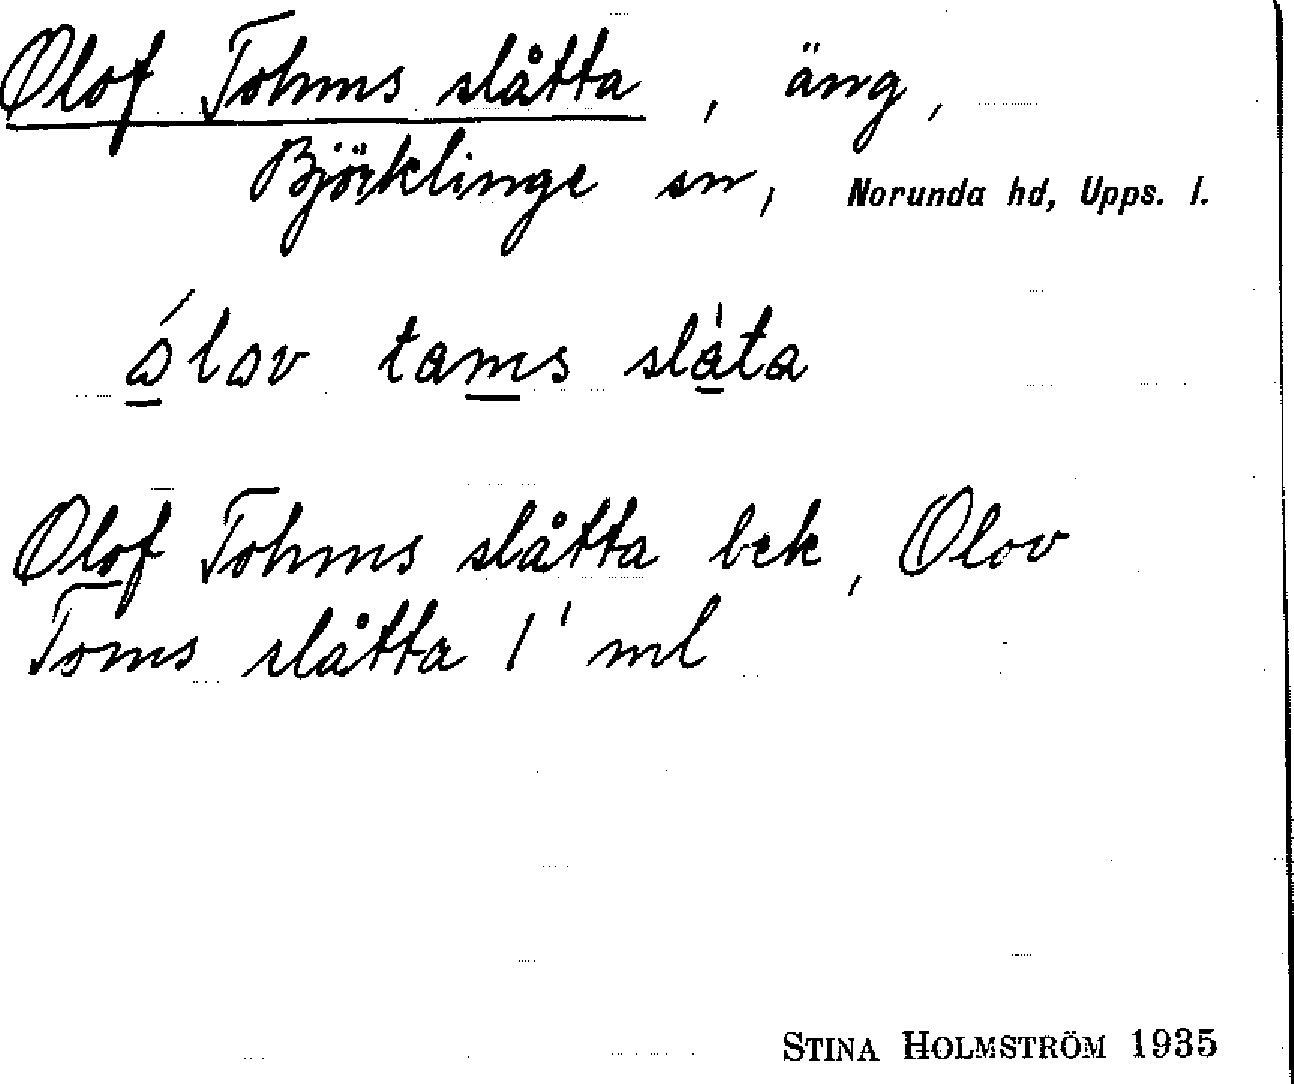 Olof Tohms slåtta, äng,
Björklinge sn, Norunda hd, Upps. l.
ólov tams slàta
Olof Tohms slåtta bek, Olov
Toms slåtta l' ml
STINA HOLMSTRÖM 1935